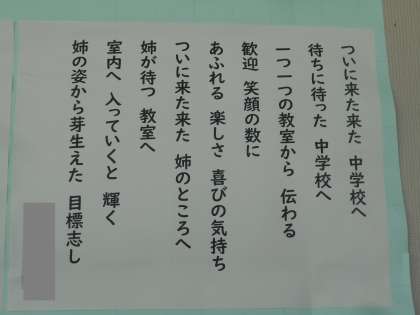 ついに来た来た 中学校へ
待ちに待った 中学校へ
一つ一つの教室から 伝わる
歓迎 笑顔の数に
あふれる 楽しさ 喜びの気持ち
ついに来た来た 姉のところへ
姉が待つ 教室へ
室内へ 入っていくと 輝く
姉の姿から芽生えた 目標志し